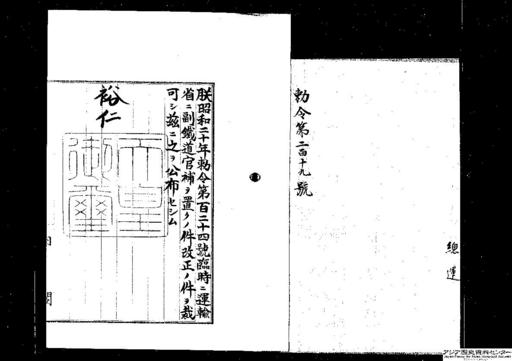 勅令第二百十九號
朕昭和二十年勅令第百二十四號臨時ニ運輸
省ニ副鐵道官補ヲ置クノ件改正ノ件ヲ裁
可シ茲ニ之ヲ公布セシム
裕仁
天皇御璽
内閣
總運
アジア歴史資料センター
Japan Center for Asian Historical Records